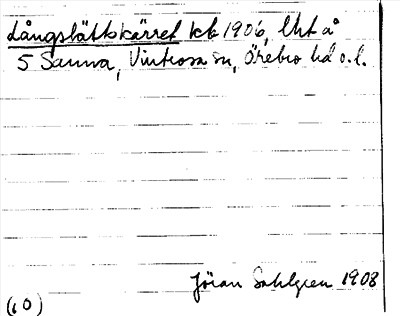 Långslättskärret kk 1906, Uht å
5 Sanna, Vintrosa sn, Örebro hd o. l.
Jöran Sahlgren 1908
(10)